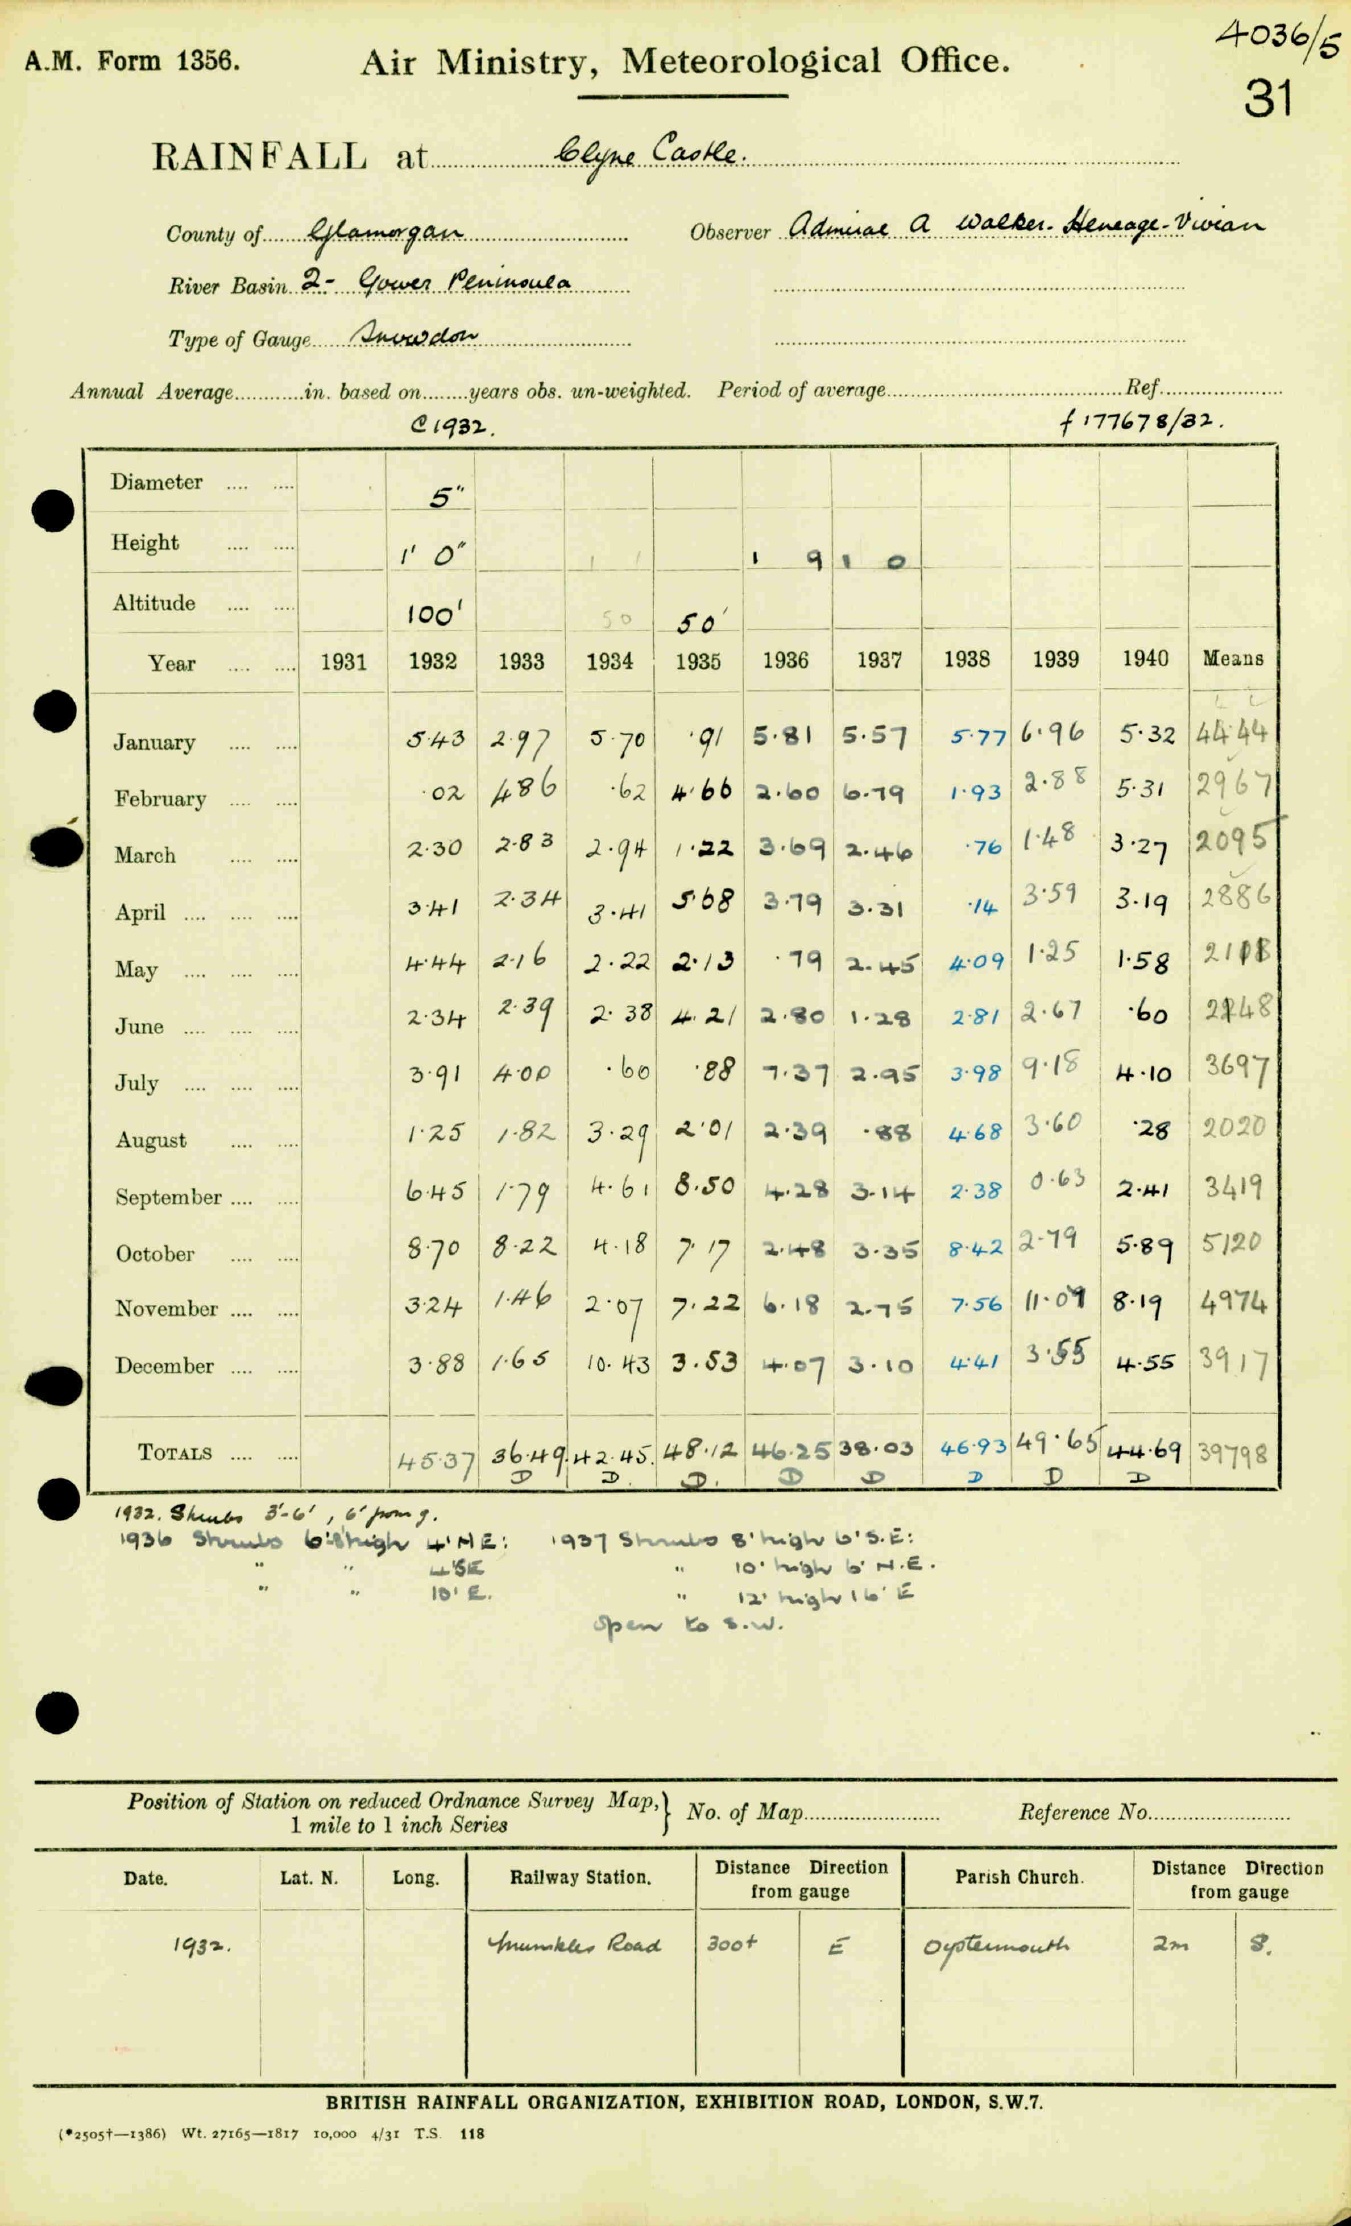 4036/5
A.M. Form 1356.
Air Ministry, Meteorological Office.
31
RAINFALL at Clyne Castle.
County of Glamorgan Observer Admiral A Walker-Heneage-Vivian
River Basin 2- Gower Peninsula
Type of Gauge Snowdon
Annual Average in. based on years obs. un-weighted. Period of average Ref.
C 1932. f 177678/32.
Diameter 5"
Height 1' 0" 1 9 1 0
Altitude 100' 50 50'
Year 1931 1932 1933 1934 1935 1936 1937 1938 1939 1940 Means
January 5.43 2.97 5.70 .91 5.81 5.57 5.77 6.96 5.32 4444
February .02 4.86 .62 4.66 2.60 6.79 1.93 2.88 5.31 2967
March 2.30 2.83 2.94 1.22 3.69 2.46 .76 1.48 3.27 2095
April 3.41 2.34 3.41 5.68 3.79 3.31 .14 3.59 3.19 2886
May 4.44 2.16 2.22 2.13 .79 2.45 4.09 1.25 1.58 2111
June 2.34 2.39 2.38 4.21 2.80 1.28 2.81 2.67 .60 2148
July 3.91 4.00 .60 .88 7.37 2.95 3.98 9.18 4.10 3697
August 1.25 1.82 3.29 2.01 2.39 .88 4.68 3.60 .28 2020
September 6.45 1.79 4.61 8.50 4.28 3.14 2.38 0.63 2.41 3419
October 8.70 8.22 4.18 7.17 2.48 3.35 8.42 2.79 5.89 5120
November 3.24 1.46 2.07 7.22 6.18 2.75 7.56 11.07 8.19 4974
December 3.88 1.65 10.43 3.53 4.07 3.10 4.41 3.55 4.55 3917
TOTALS 45.37 36.49 42.45 48.12 46.25 38.03 46.93 49.65 44.69 39798
D D D D D D D D
1932. Shrubs 3'-6', 6' from g.
1936 Shrubs 6'8' high 4' NE: 1937 Shrubs 8' high 6' S.E:
" " 4' SE " 10' high 6' N.E.
" " 10' E. " 12' high 16' E
open to S.W.
Position of Station on reduced Ordnance Survey Map, 1 mile to 1 inch Series } No. of Map Reference No.
Date. Lat. N. Long. Railway Station. Distance Direction from gauge Parish Church. Distance Direction from gauge
1932. Mumbles Road 300+ E Oystermouth 2m S.
BRITISH RAINFALL ORGANIZATION, EXHIBITION ROAD, LONDON, S.W.7.
(*2505†—1386) Wt. 27165—1817 10,000 4/31 T.S. 118